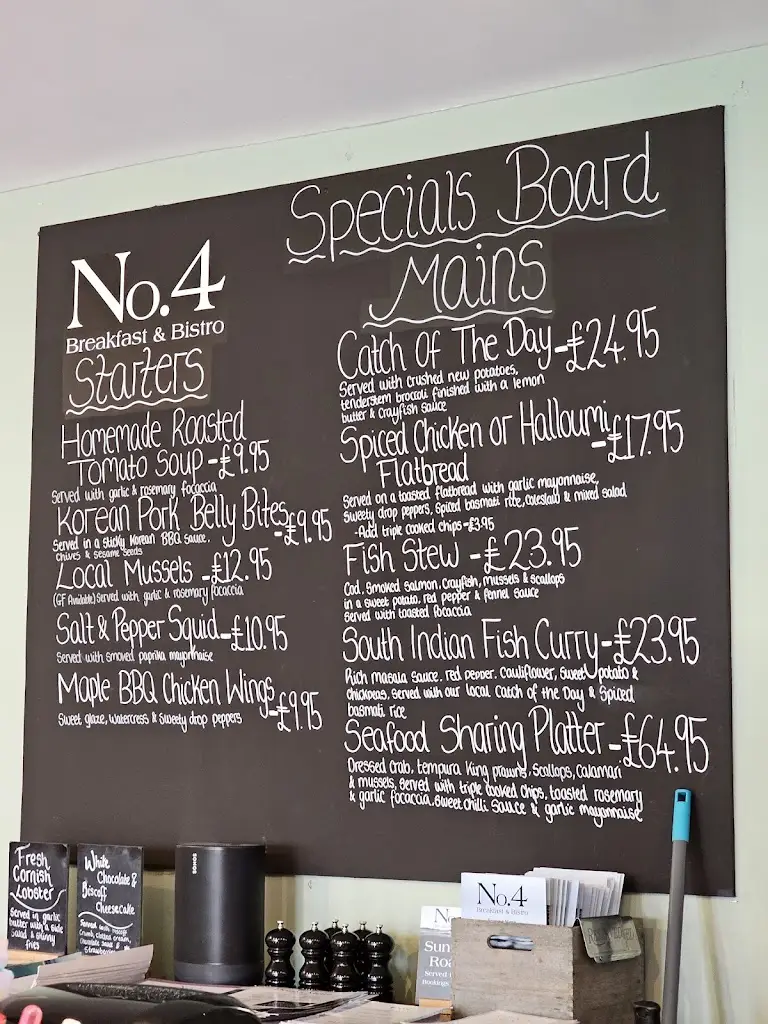 Specials Board
No.4
Breakfast & Bistro
Starters
Homemade Roasted
Tomato Soup - £9.95
Served with garlic & rosemary focaccia
Korean Pork Belly Bites - £9.95
Served in a sticky Korean BBQ sauce,
chives & sesame seeds
Local Mussels - £12.95
(GF Available) Served with garlic & rosemary focaccia
Salt & Pepper Squid - £10.95
Served with smoked paprika mayonnaise
Maple BBQ Chicken Wings - £9.95
Sweet glaze, watercress & sweety drop peppers
Mains
Catch Of The Day - £24.95
Served with crushed new potatoes,
tenderstem brocoli finished with a lemon
butter & crayfish sauce
Spiced Chicken or Halloumi - £17.95
Flatbread
Served on a toasted flatbread with garlic mayonnaise,
sweety drop peppers, spiced basmati rice, coleslaw & mixed salad
- Add triple cooked chips - £3.95
Fish Stew - £23.95
Cod, smoked salmon, crayfish, mussels & scallops
in a sweet potato, red pepper & fennel sauce
served with toasted focaccia
South Indian Fish Curry - £23.95
Rich masala sauce, red pepper, cauliflower, sweet potato &
chickpeas, served with our local catch of the day & spiced
basmati rice
Seafood Sharing Platter - £64.95
Dressed crab, tempura king prawns, scallops, calamari
& mussels, served with triple cooked chips, toasted rosemary
& garlic focaccia, sweet chilli sauce & garlic mayonnaise
Fresh
Cornish
Lobster
Served in garlic
butter with a side
salad & skinny
fries
White
Chocolate &
Biscoff
Cheesecake
Served with biscoff
crumb, clotted cream,
chocolate sauce &
strawberries
SONOS
No.4
Breakfast & Bistro
Sun
Roa
Served
Bookings